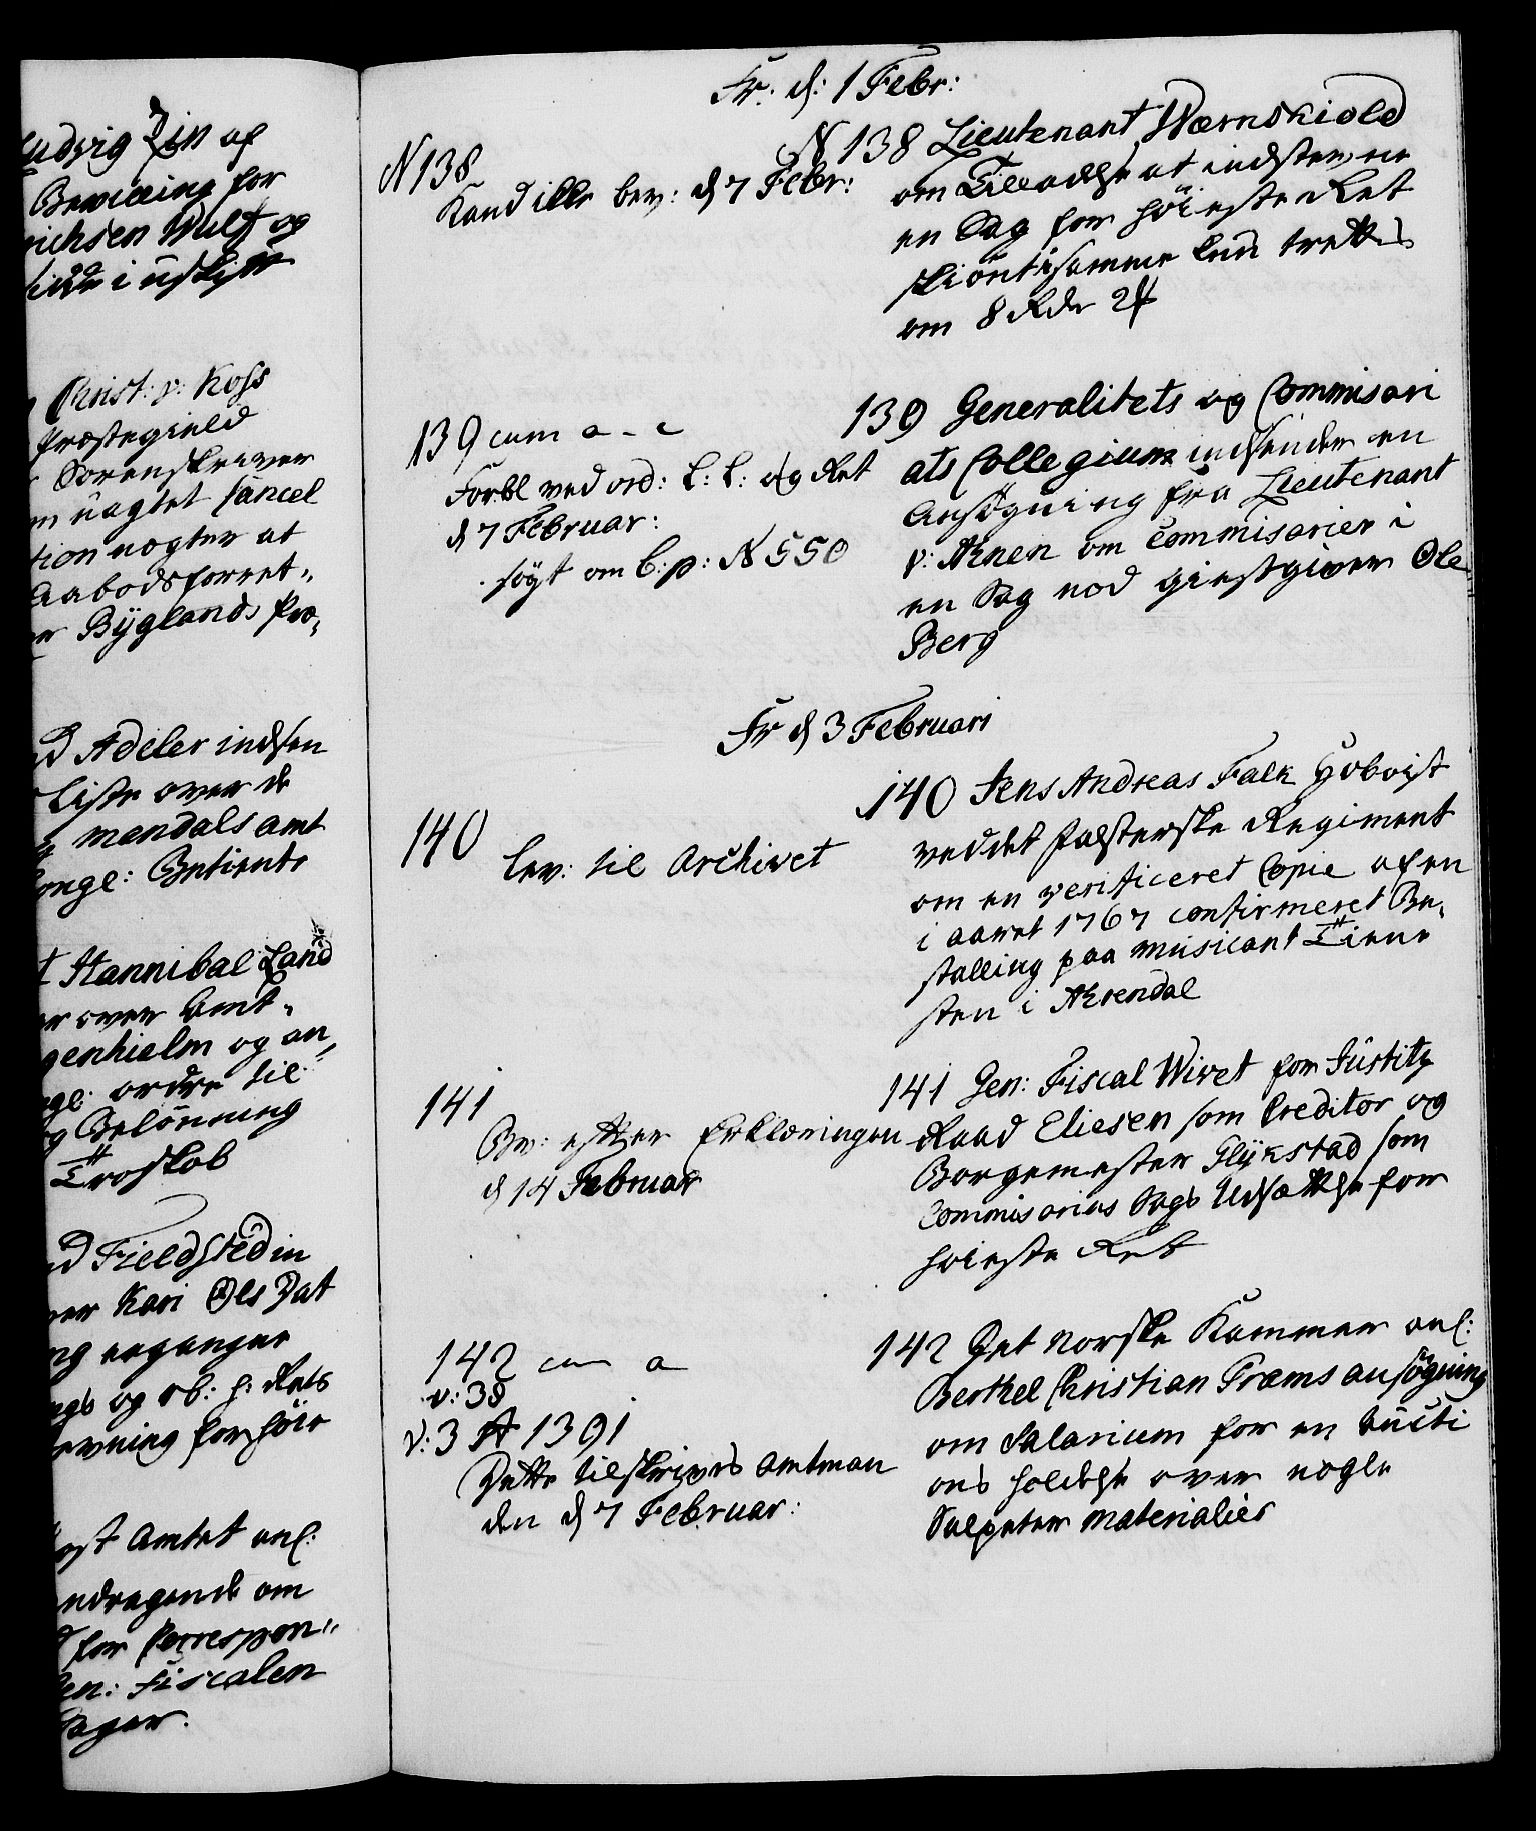 udvig Zin af
Bewilling for
richsen Wulf og
i uskift
Christ: v: Koss
Præstegield
Sorenskriver
uagtet Cancel
tion nægter at
Aabodsforret„
Byglands Præ„
Adeler indsen
Liste over de
mandals amt
Betiente
Hannibal Land
over Amt„
genhielm og an„
ordre til
og Belönning
Troskab
Fieldsted in
Kari Ols Dat
ergangne
og ob: h: Rets
for höie
Amtet anl:
andragende om
for Correspon„
Gen: Fiscalen
Sager.
Fr: d: 1 Febr:
N 138
Kand ikke bev: d 7 Febr:
N 138 Lieutenant Wærnskiold
om Tilladelse at indstevne
en Sag for höieste Ret
skiönt samme kun trettes
om 8 Rdr 2
139 cum a - c
Forbl ved ord: L: L: og Ret
d 7 Februar:
søgt om b: p: N 550
139 Generalitets og Commisari
ats Collegium indsender en
Ansögning fra Lieutenant
v: Aknen om Commisarier i
en Sag mod giestgiver Ole
Berg
Fr d 3 Februari
140
lev: til Archivet
140 Jens Andreas Falk Hoboist
ved det falsterske Regiment
om en verificeret Copie af en
i aaret 1767 confirmeret Be„
stalling paa musicant Tiene
sten i Arendal
141
Bev: efter Erklæringen
d 14 Februar
141 Gen: Fiscal Wivet for Justitz
Raad Eliesen som Creditor og
Borgemester Flÿkstad som
Commisarius Sags Udsættelse for
höieste Ret
142 cum a
v: 38
v: 3 A 1391
Dette tilskrives amtman
den d 7 Februar:
142 Det norske Kammer anl:
Berthel Christian Frams ansögning
om Salarium for en Aucti
ons holdelse over nogle
Salpeter materialier